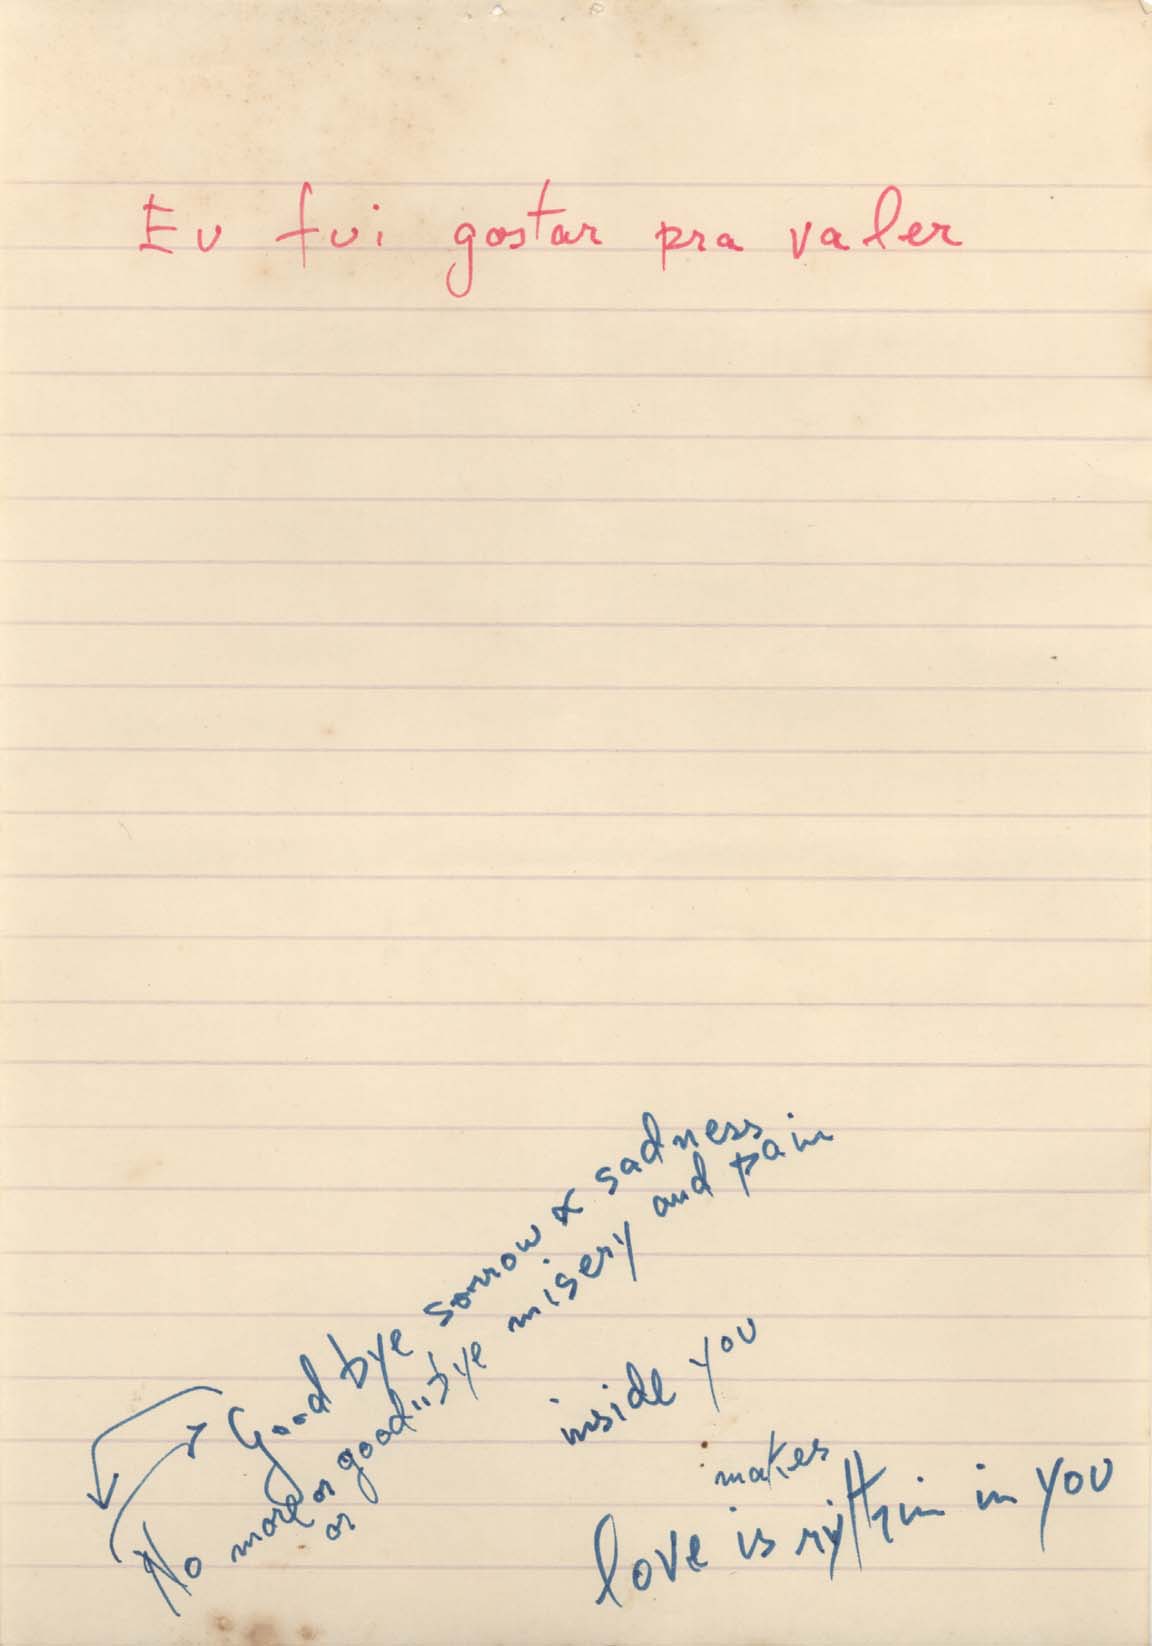 Eu fui gostar pra valer
Good bye sorrow & sadness
No more or good "bye misery and pain
or
inside you
makes
love is in you